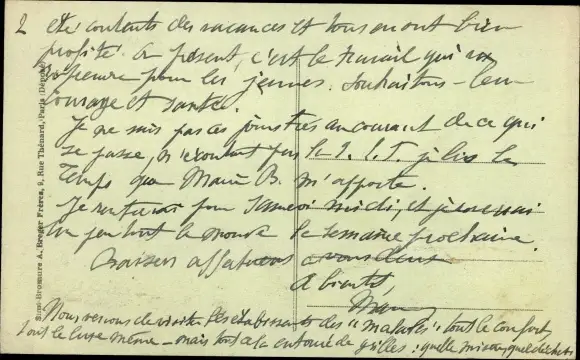 2 été contents des vacances et tous en ont bien
profité. A présent, c'est le travail qui va
reprendre pour les jeunes. Souhaitons-leur
courage et santé.
Je ne suis pas ces jours très au courant de ce qui
se passe, n'écoutant pas la T.S.F. je lis le
Temps que Marie B. m'apporte.
Je rentrerai pour Samedi midi, et je verrai
un peu tout le monde la semaine prochaine.
Baisers affectueux à vous deux
A bientôt,
Nous venons de visiter les établissements des "malades" tout le confort
tout le luxe même - mais tout a la entouré de grilles : quelle misère, quel déchet
Simi-Bromure A. Breger Frères, 9, Rue Thénard, Paris